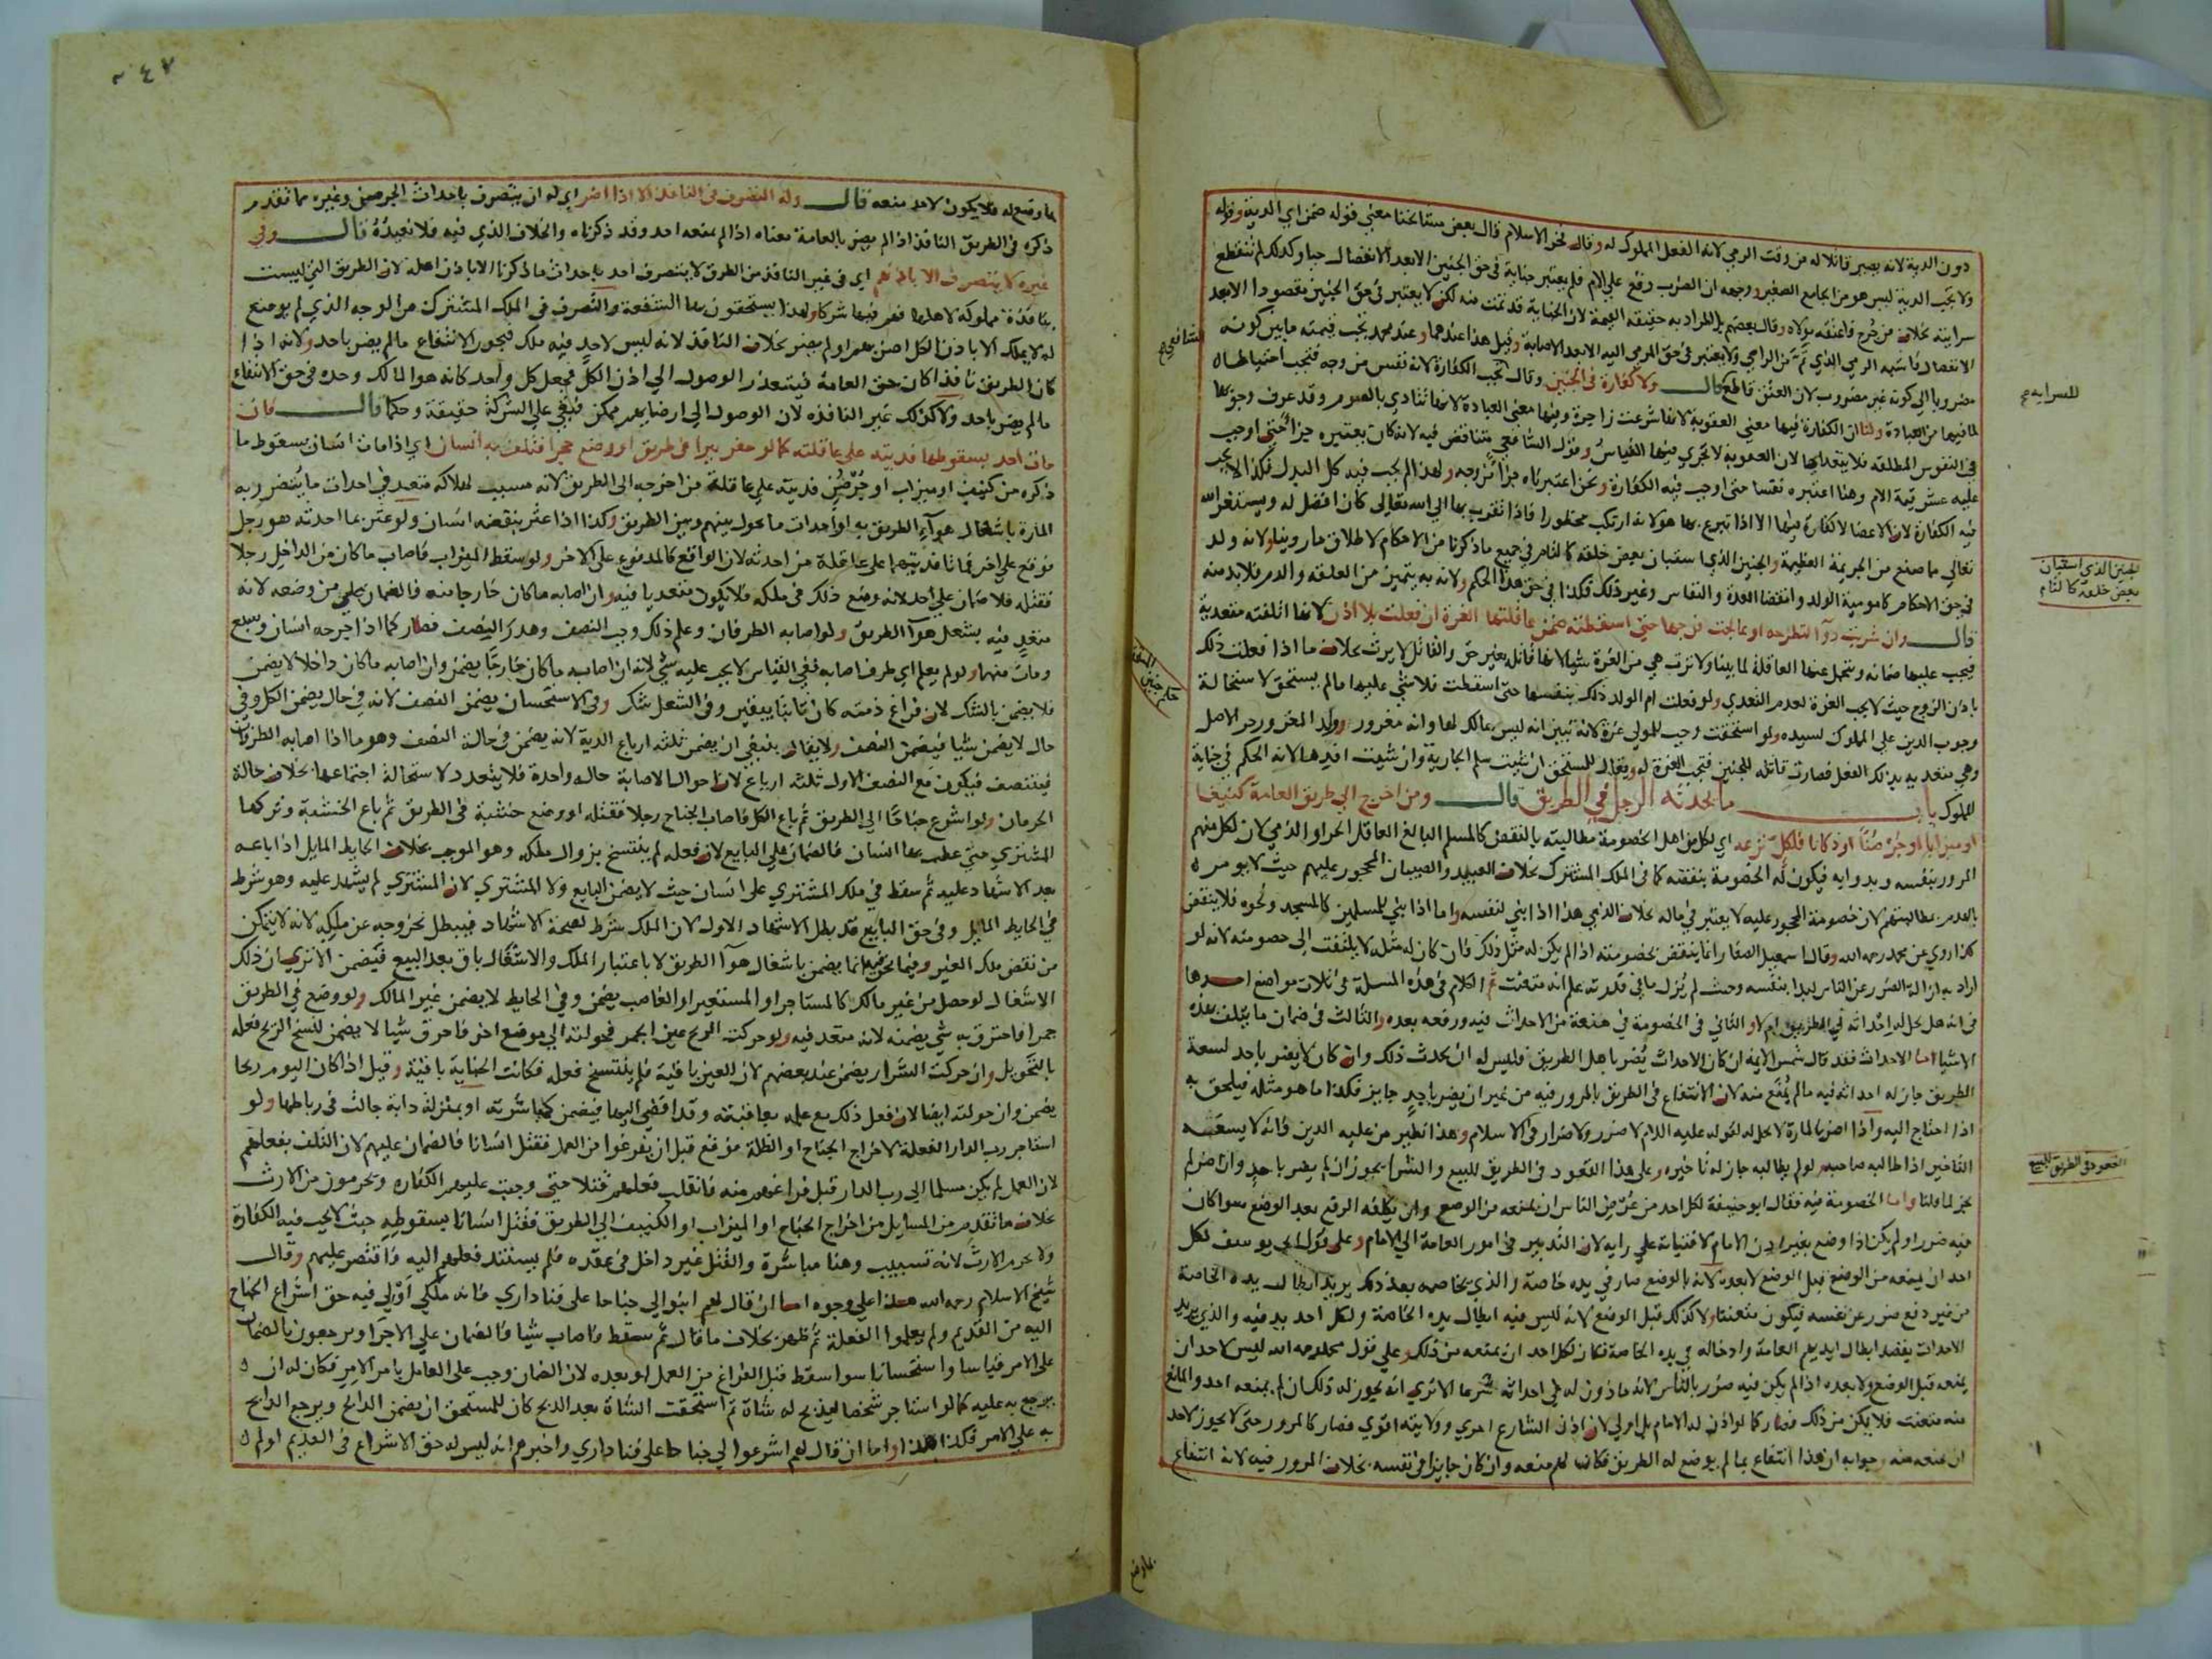 دون الدية لانه يصير قاتلا له من وقت الرمي لانه الفعل المملوك له وقال فخر الاسلام قال بعض مشايخنا معنى قوله ضمن اي الدية وقوله
ولا تجب الدية ليس هو من الجامع الصغير ووجهه ان الضرب وقع على الام فلم يعتبر جناية في حق الجنين الا بعد الانفصال حيا وكذلك لم تنقطع
سرايته بخلاف من جرح فاعتقه مولاه وقال بعضهم بل المراد به حقيقة القيمة لان الجناية قد تمت منه لكن لا يعتبر في حق الجنين مقصودا الا بعد
الانفصال فاشبه الرمي الذي تم من الرامي ولا يعتبر في حق المرمي اليه الا بعد الاصابة وقيل هذا عندهما وعند محمد تجب قيمته ما بين كونه
مضروبا الى كونه غير مضروب لان العتق قاطع قال ولا كفارة في الجنين وقال تجب الكفارة لانه نفس من وجه فتجب احتياطا
لما فيها من العبادة ولنا ان الكفارة فيها معنى العقوبة لانها شرعت زاجرة وفيها معنى العبادة لانها تتادى بالصوم وقد عرف وجوبها
في النفوس المطلقة فلا يتعداها لان العقوبة لا تجري فيها القياس وقول الشافعي متناقض فيه لانه كان يعتبره جزا حتى اوجب
عليه عشر قيمة الام وهنا اعتبره نفسا حتى اوجب فيه الكفارة ونحن اعتبرناه جزا من وجه ولهذا لم يجب فيه كل البدل فكذا لا يجب
فيه الكفارة لان الاعضا لا كفارة فيها الا اذا تبرع بها هو لانه ارتكب محظورا فاذا تقرب بها الى الله تعالى كان افضل له ويستغفر الله
تعالى ما صنع من الجريمة العظيمة والجنين الذي استبان بعض خلقه كالتام في جميع ما ذكرنا من الاحكام لاطلاق ما روينا ولانه ولد
في حق الاحكام كامومية الولد وانقضا العدة والنفاس وغير ذلك فكذا في حق هذا الحكم ولانه به يتميز من العلقة والدم فلا بد منه
قال وان شربت دوا لتطرحه او عالجت فرجها حتى اسقطته ضمن عاقلتها الغرة ان فعلت بلا اذن لانها اتلفته متعدية
فيجب عليها ضمانه ويتحمل عنها العاقلة لما بينا ولا ترث هي من الغرة شيا لانها قاتلة بغير حق والقاتل لا يرث بخلاف ما اذا فعلت ذلك
باذن الزوج حيث لا يجب الغرة لعدم التعدي ولو فعلت ام الولد ذلك بنفسها حتى اسقطت فلا شي عليها ما لم يستحق لاستحالة
وجوب الدين على المملوك لسيده ولو استحقت وجب للمولى غرة لانه تبين انه ليس بمالك لها وانه مغرور وولد المغرور حر الاصل
وهي متعدية بذلك الفعل فصارت قاتلة للجنين فتجب الغرة له ويقال للمستحق ان شيت سلم الجارية وان شيت افدها لانه الحكم في جناية
المملوك باب ما يحدثه الرجل في الطريق قال ومن اخرج الى طريق العامة كنيفا
او ميزابا او جرصنا او دكانا فلكل نزعه اي لكل من اهل الخصومة مطالبته بالنقض كالمسلم البالغ العاقل الحر او الذمي لان لكل منهم
المرور بنفسه وبدوابه فيكون له الخصومة بنقضه كما في الملك المشترك بخلاف العبيد والصبيان المحجور عليهم حيث لا يومر
بالهدم بمطالبتهم لان خصومة المحجور عليه لا يعتبر في ماله بخلاف الذمي هذا اذا بنى لنفسه واما اذا بنى للمسلمين كالمسجد ونحوه فلا ينقض
كذا روي عن محمد رحمه الله وقال اسمعيل الصفار انما ينقض بخصومته اذا لم يكن له مثل ذلك فان كان له مثله لا يلتفت الى خصومته لانه لو
اراد به ازالة الضرر عن الناس لبدا بنفسه وحيث لم يزل ما في قدرته علم انه متعنت ثم الكلام في هذه المسلة في ثلاث مواضع احدها
في انه هل يحل له احداثه في الطريق ام لا والثاني في الخصومة في منعه من الاحداث فيه ورفعه بعده والثالث في ضمان ما يتلف بهذه
الاشيا اما الاحداث فقد قال شمس الايمة ان كان الاحداث يضر باهل الطريق فليس له ان يحدث ذلك وان كان لا يضر باحد لسعة
الطريق جاز له احداثه فيه ما لم يمنع منه لان الانتفاع في الطريق بالمرور فيه من غير ان يضر باحد جايز فكذا ما هو مثله فيلحق به
اذا احتاج اليه واذا اضر بالمارة لا يحل له لقوله عليه السلام لا ضرر ولا ضرار في الاسلام وهذا نظير من عليه الدين فانه لا يسعه
التاخير اذا طالبه صاحبه ولو لم يطالبه جاز له تاخيره وعلى هذا القعود في الطريق للبيع والشرا يجوز ان لم يضر باحد وان اضر لم
يجز لما قلنا واما الخصومة فيه فقال ابو حنيفة لكل احد من عرض الناس ان يمنعه من الوضع وان يكلفه الرفع بعد الوضع سوا كان
فيه ضرر او لم يكن اذا وضع بغير اذن الامام لافتياته على رايه لان التدبير في امور العامة الى الامام وعلى قول ابي يوسف لكل
احد ان يمنعه من الوضع قبل الوضع لا بعده لانه بالوضع صار في يده خاصة والذي يخاصمه بعد ذلك يريد ابطال يده الخاصة
من غير دفع ضرر عن نفسه فيكون متعنتا ولا كذلك قبل الوضع لانه ليس فيه ابطال يده الخاصة ولكل احد يد فيه والذي يريد
الاحداث يقصد ابطال ايديهم العامة وادخاله في يده الخاصة فكان لكل احد ان يمنعه من ذلك وعلى قول محمد رحمه الله ليس لاحد ان
يمنعه قبل الوضع ولا بعده اذا لم يكن فيه ضرر بالناس لانه ماذون له في احداثه شرعا الا ترى انه يجوز له ذلك ان لم يمنعه احد والمانع
منه متعنت فلا يمكن من ذلك فصار كما لو اذن له الامام بل اولى لان اذن الشارع احرى وولايته اقوى فصار كالمرور حتى لا يجوز لاحد
ان يمنعه منه وجوابه ان هذا انتفاع بما لم يوضع له الطريق فكان لهم منعه وان كان جايزا في نفسه بخلاف المرور فيه لانه انتفاع
الشافعي
للسراية
الجنين الذي استبان
بعض خلقه كالتام
القعود في الطريق للبيع
بما وضع
بما وضع له فلا يكون لاحد منعه قال وله التصرف في النافذ الا اذا اضر اي له ان يتصرف باحداث الجرصن وغيره مما تقدم
ذكره في الطريق النافذ اذا لم يضر بالعامة معناه اذا لم يمنعه احد وقد ذكرناه والخلاف الذي فيه فلا نعيده قال وفي
غيره لا يتصرف الا باذنهم اي في غير النافذ من الطرق لا يتصرف احد باحداث ما ذكرنا الا باذن اهله لان الطريق التي ليست
بنافذة مملوكة لاهلها فهم فيها شركا ولهذا يستحقون بها الشفعة والتصرف في الملك المشترك من الوجه الذي لم يوضع
له لا يملك الا باذن الكل اضر بهم او لم يضر بخلاف النافذ لانه ليس لاحد فيه ملك فيجوز الانتفاع ما لم يضر باحد ولانه اذا
كان الطريق نافذا كان حق العامة فيتعذر الوصول الى اذن الكل فجعل كل واحد كانه هو المالك وحده في حق الانتفاع
ما لم يضر باحد ولا كذلك غير النافذه لان الوصول الى ارضايهم ممكن فبقي على الشركة حقيقة وحكما قال فان
مات احد بسقوطها فديته على عاقلته كما لو حفر بيرا في طريق او وضع حجرا فتلف به انسان اي اذا مات انسان بسقوط ما
ذكره من كنيف او ميزاب او جرصن فديته على عاقلة من اخرجه الى الطريق لانه مسبب لهلاكه متعد في احداث ما يتضرر به
المارة باشغال هواء الطريق به او احداث ما يحول بينهم وبين الطريق وكذا اذا عثر بنقضه انسان ولو عثر بما احدثه هو رجل
فوقع على اخر فماتا فديتهما على عاقلة من احدثه لان الواقع كالمدفوع على الاخر ولو سقط الميزاب فاصاب ما كان من الداخل رجلا
فقتله فلا ضمان على احد لانه وضع ذلك في ملكه فلا يكون متعديا فيه وان اصابه ما كان خارجا منه فالضمان على من وضعه لانه
متعد فيه بشغل هوآ الطريق ولو اصابه الطرفان وعلم ذلك وجب النصف وهدر النصف فصار كما اذا جرحه انسان وسبع
ومات منهما ولو لم يعلم اي طرف اصابه ففي القياس لا يجب عليه شي لانه ان اصابه ما كان خارجا يضمن وان اصابه ما كان داخلا لا يضمن
فلا يضمن بالشك لان فراغ ذمته كان ثابتا بيقين وفي الشغل شك وفي الاستحسان يضمن النصف لانه في حال يضمن الكل وفي
حال لا يضمن شيا فيضمن النصف ولا يقال ينبغي ان يضمن ثلثه ارباع الدية لانه يضمن في حالة النصف وهو ما اذا اصابه الطرفان
فيتنصف فيكون مع النصف الاول ثلثه ارباع لان احوال الاصابة حالة واحدة فلا يتعدد لاستحالة اجتماعها بخلاف حالة
الحرمان ولو اشرع جناحا الى الطريق ثم باع الكل فاصاب الجناح رجلا فقتله او وضع خشبة في الطريق ثم باع الخشبة وتركها
المشتري حتى عطب بها انسان فالضمان على البايع لان فعله لم ينفسخ بزوال ملكه وهو الموجب بخلاف الحايط المايل اذا باعه
بعد الاشهاد عليه ثم سقط في ملك المشتري على انسان حيث لا يضمن البايع ولا المشتري لان المشتري لم يشهد عليه وهو شرط
في الحايط المايل وفي حق البايع قد بطل الاشهاد الاول لان الملك شرط لصحة الاشهاد فيبطل بخروجه عن ملكه لانه لا يتمكن
من نقض ملك الغير وفيما نحن فيه انما يضمن باشغال هوآ الطريق لا باعتبار الملك والاشغال باق بعد البيع فيضمن الا ترى ان ذلك
الاشغال لو حصل من غير مالك كالمستاجر او المستعير او الغاصب يضمن وفي الحايط لا يضمن غير المالك ولو وضع في الطريق
جمرا فاحترق به شي يضمنه لانه متعد فيه ولو حركته الريح عين الجمر فحولته الى موضع اخر فاحرق شيا لا يضمن لنسخ الريح فعله
بالتحويل وان حركت الشرار يضمن عند بعضهم لان العين باقية فلم ينفسخ فعله فكانت الجناية باقية وقيل اذا كان اليوم ريحا
يضمن وان حولته ايضا لانه فعل ذلك مع علمه بعاقبته وقد افضى اليها فيضمن كمباشرته او بمنزلة دابة جالت في رباطها ولو
استاجر رب الدار الفعلة لاخراج الجناح او الظلة فوقع قبل ان يفرغوا من العمل فقتل انسانا فالضمان عليهم لان التلف بفعلهم
لان العمل لم يكن مسلما الى رب الدار قبل فراغهم منه فانقلب فعلهم قتلا حتى وجبت عليهم الكفاره ويحرمون من الارث
بخلاف ما تقدم من المسايل من اخراج الجناح او الميزاب او الكنيف الى الطريق فقتل انسانا بسقوطه حيث لا يجب فيه الكفارة
ولا يحرم الارث لانه تسبيب وهنا مباشرة والقتل غير داخل في عقده فلم يستند فعلهم اليه فاقتصر عليهم وقال
شيخ الاسلام رحمه الله هذا على وجوه اما ان قال لهم ابنوا لي جناحا على فنا داري فانه ملكي او لي فيه حق اشراع الجناح
اليه من القديم ولم يعلموا الفعلة ثم ظهر بخلاف ما قال ثم سقط فاصاب شيا فالضمان على الاجرا ويرجعون بالضمان
على الامر قياسا واستحسانا سوا سقط قبل الفراغ من العمل او بعده لان الضمان وجب على العامل بامر الامر فكان له ان
يرجع به عليه كما لو استاجر شخصا ليذبح له شاة ثم استحقت الشاة بعد الذبح كان للمستحق ان يضمن الذابح ويرجع الذابح
به على الامر فكذا هذا واما ان قال لهم اشرعوا لي جناحا على فنا داري واخبرهم انه ليس له حق الاشراع في القديم او لم